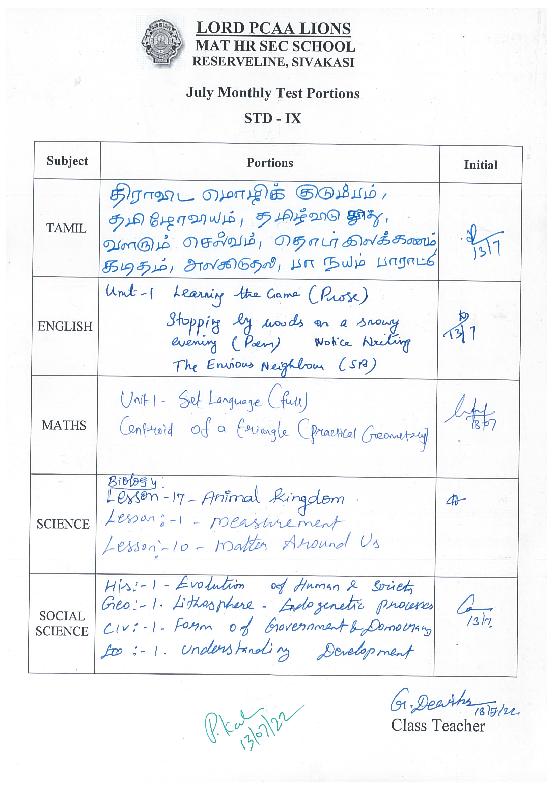 LORD PCAA LIONS
MAT HR SEC SCHOOL
RESERVELINE, SIVAKASI
July Monthly Test Portions
STD - IX
Subject Portions Initial
TAMIL
திராவிட மொழிக் குடும்பம்,
தமிழோவியம், தமிழ்விடு தூது,
வளரும் செல்வம், தொடர் இலக்கணம்
கடிதம், அலகிடுதல், பா நயம் பாராட்டு
13/7
ENGLISH
Unit-1 Learning the Game (Prose)
Stopping by woods on a snowy
evening (Poem) Notice Writing
The Envious Neighbour (SR)
13/7
MATHS
Unit 1 - Set Language (full)
Centroid of a triangle (practical Geometry)
13/07
SCIENCE
Biology:
Lesson-17 - Animal kingdom.
Lesson:-1 - measurement
Lesson:-10 - Matter Around Us
SOCIAL SCIENCE
His:-1 - Evolution of Human & Society
Geo:-1. Lithosphere - Endogenetic processes
Civ:-1. Form of Government & Democracy
Eco:-1. Understanding Development
13/7
13/07/22
Class Teacher